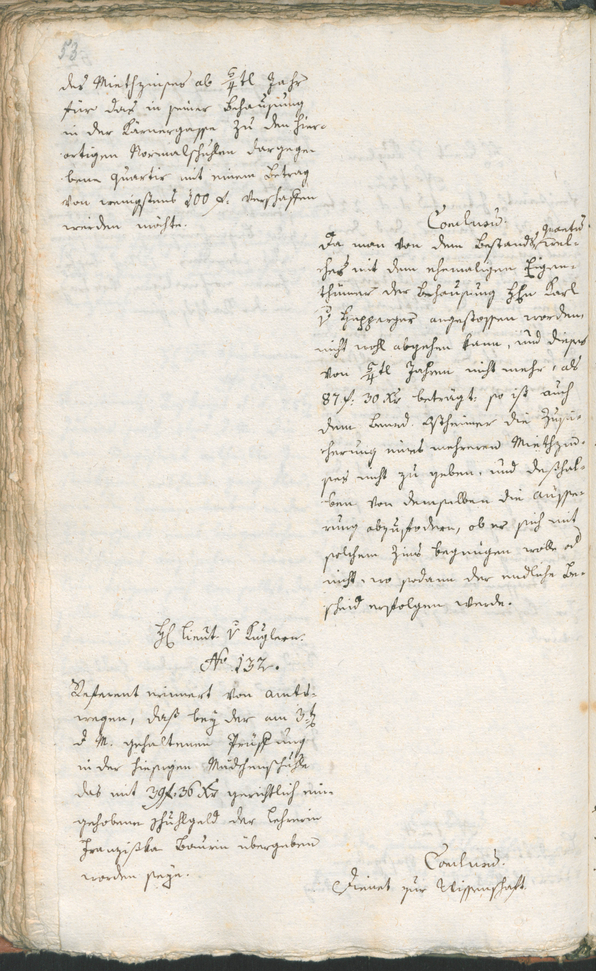 53
des Miethzinses ab 5/4tl Jahr
für das in seiner Behausung
in der Kärnergasse zu den hier-
ortigen Normalschulen dargege-
bene Quartir mit einem Betrag
von wenigstens 100 f: verschaffen
werden möchte.
Conclusum.
Da man von dem Bestands quanto, wel-
ches mit dem ehemaligen Eigen-
thümer der Behausung Hhn Karl
v Hepperger angestossen worden,
nicht wohl abgehen kann, und dieses
von 5/4tl Jahren nicht mehr, als
87 f: 30 Xr beträgt: so ist auch
dem Ostheimer die Zusi-
cherung eines mehreren Miethzin-
ses nicht zu geben, und deßhal-
ben von demselben die Äusse-
rung abzufodern, ob er sich mit
solchem Zins begnügen wolle od
nicht, wo sodann der endliche Be-
scheid erfolgen werde.
H Lieut. v Kuglern.
No 132.
Referent erinnert von amts-
wegen, daß bey der am
d. M. gehaltenen Prüffung
in der hiesigen Mädchenschule
das mit 39 f: 36 Xr gerichtlich ein-
gehobene Schuhlgeld der Lehrerin
Franziska Baurin übergeben
worden seye.
Conclusum.
Dienet zur Wissenschaft.